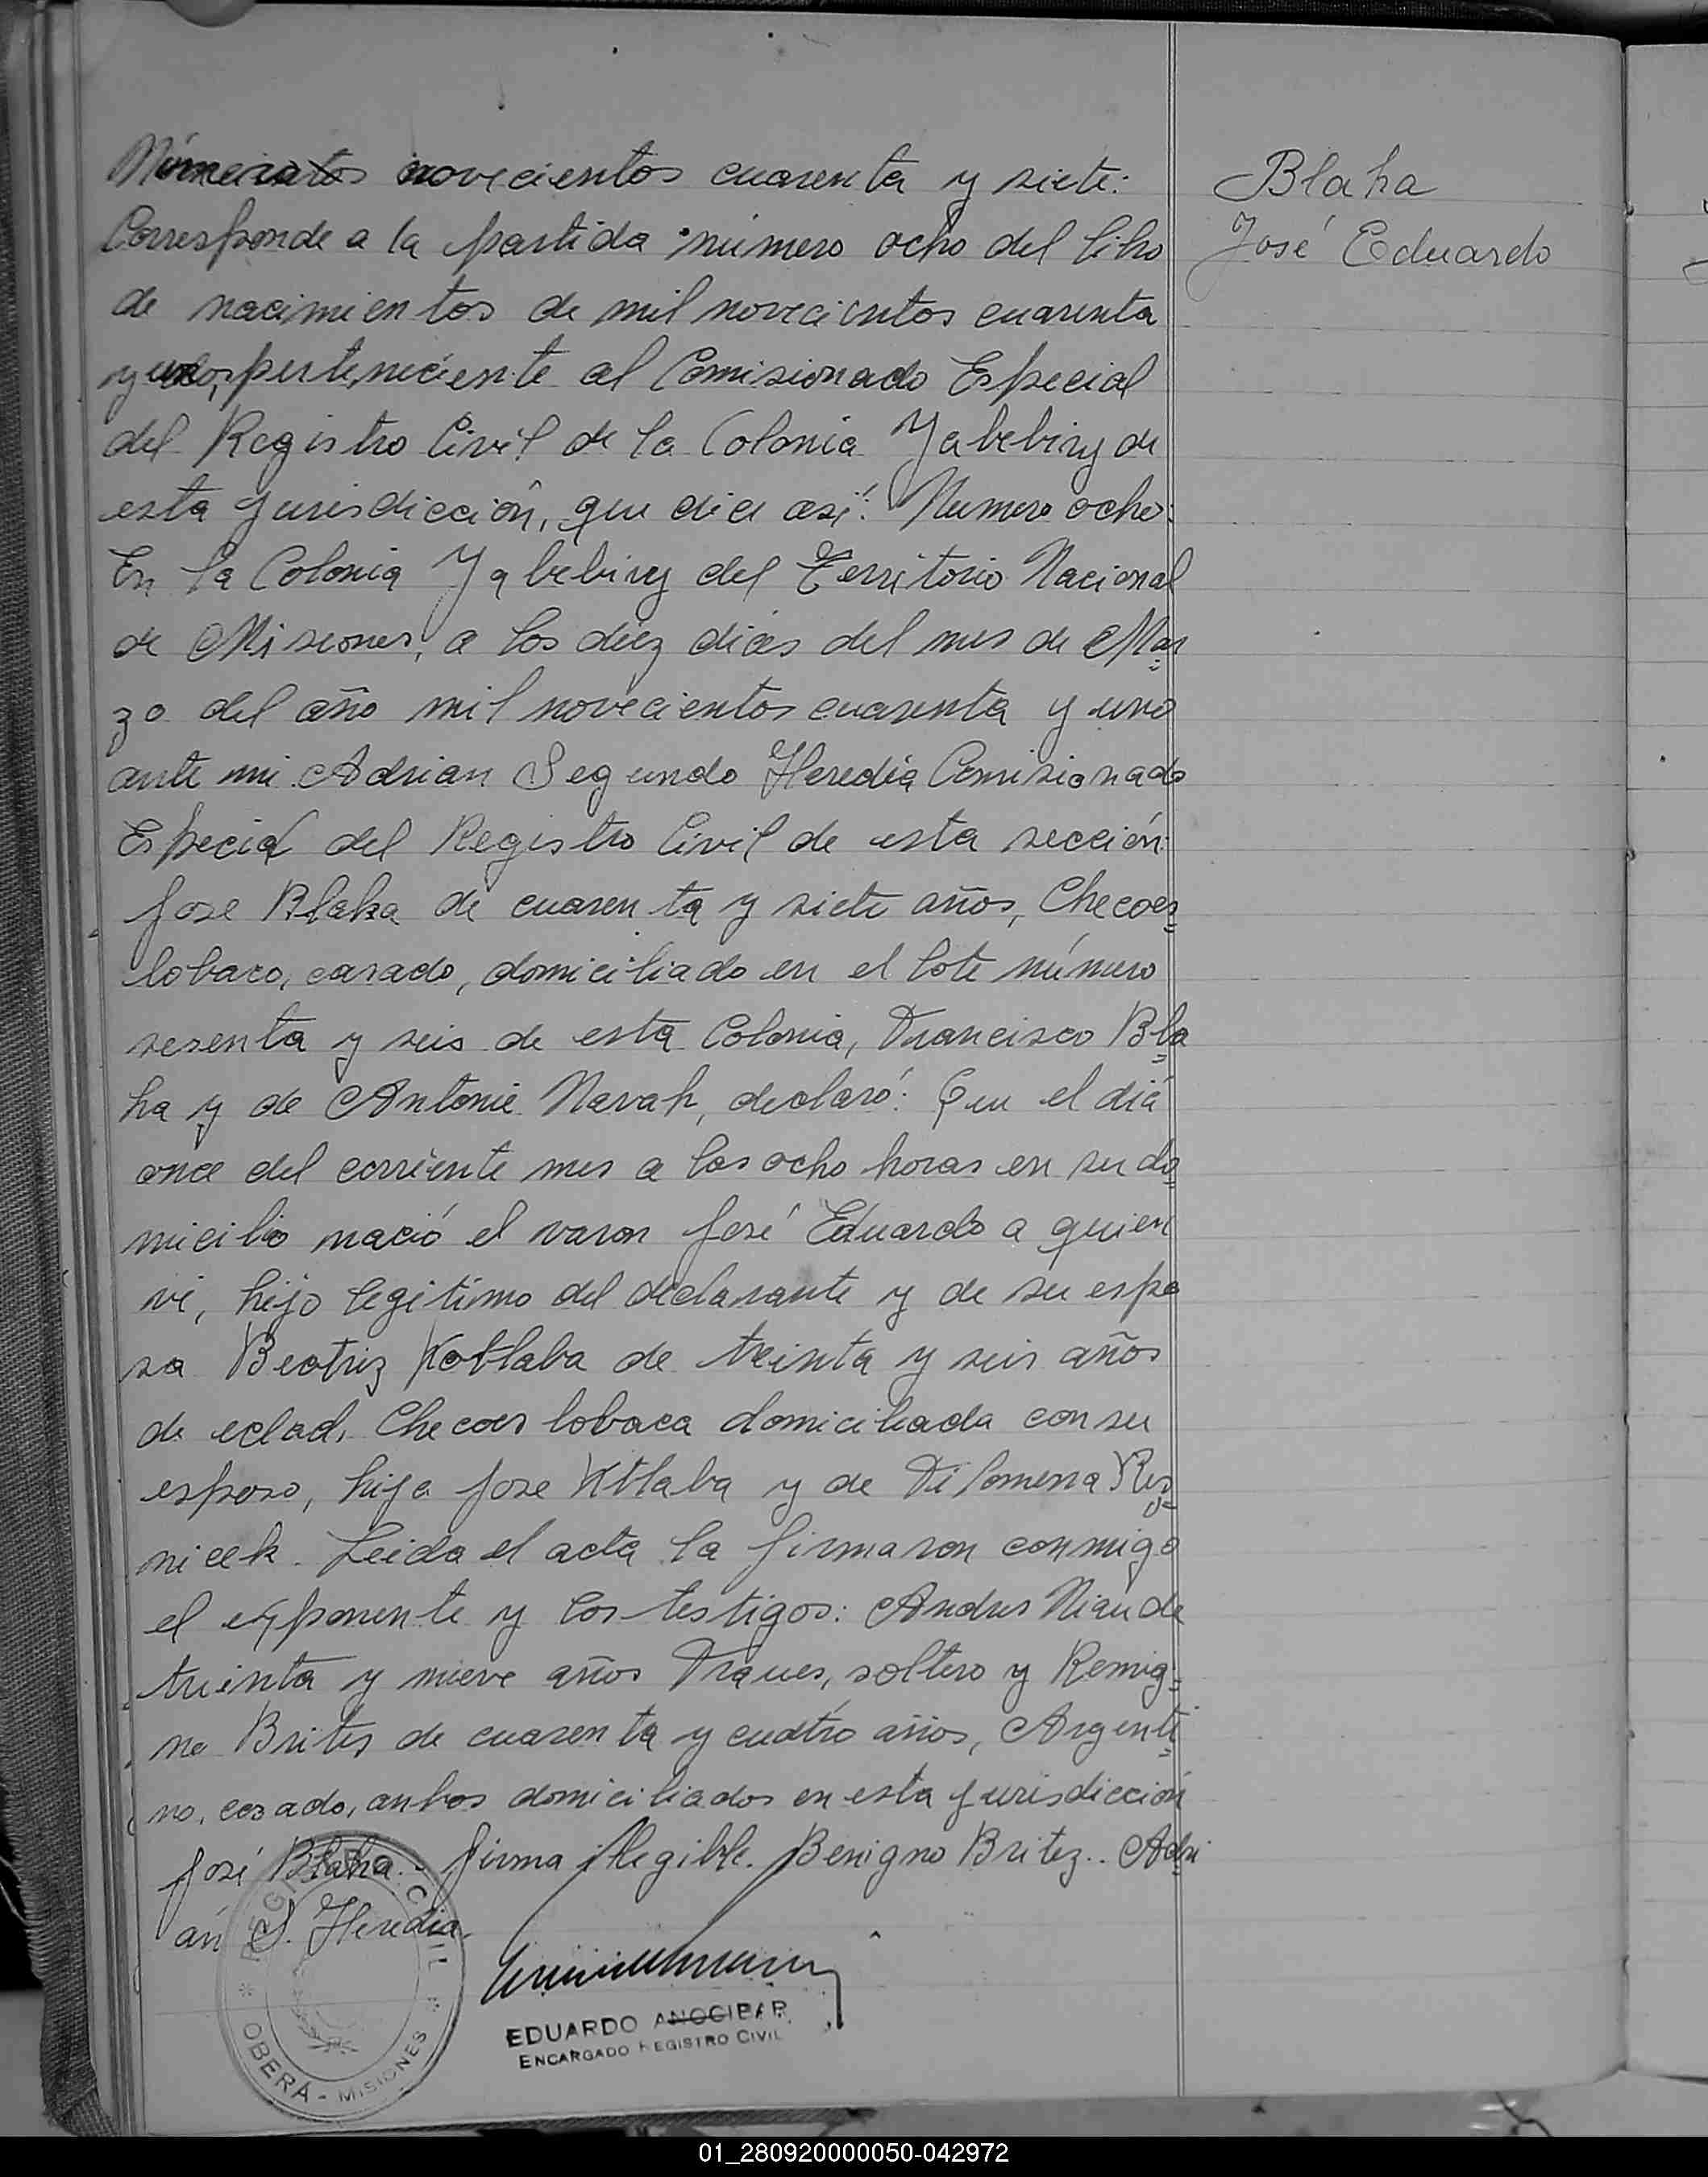 Número novecientos cuarenta y siete:
Blaha
Corresponde a la partida número ocho del libro
José Eduardo
de nacimientos de mil novecientos cuarenta
y uno, perteneciente al Comisionado Especial
del Registro Civil de la Colonia Yabebiry de
esta jurisdicción, que dice así: Numero ocho:
En la Colonia Yabebiry del Territorio Nacional
de Misiones, a los diez dias del mes de Mar
zo del año mil novecientos cuarenta y uno
ante mi Adrian Segundo Heredia Comisionado
Especial del Registro Civil de esta sección:
Jose Blaha de cuarenta y siete años, Checoes
lobaco, casado, domiciliado en el lote número
sesenta y seis de esta Colonia, Francisco Bla
ha y de Antonie Navah, declaró: Que el diá
once del corriente mes a las ocho horas en su do
micilio nació el varon José Eduardo a quien
vi, hijo legitimo del declarante y de su espo
sa Beatriz Kotlaba de treinta y seis años
de edad, Checoeslobaca domiciliada con su
esposo, hija Jose Ktlaba y de Filomena Rez
nicek. Leida el acta la firmaron conmigo
el exponente y los testigos: Andres Niau de
treinta y nueve años Frances, soltero y Remig
no Brites de cuarenta y cuatro años, Argenti
no, casado, ambos domiciliados en esta jurisdicción
José Blaha. firma ilegible. Benigno Britez.. Adri
án S. Heredia.
REGISTRO CIVIL
OBERÁ - MISIONES
EDUARDO ANOCIBAR
ENCARGADO REGISTRO CIVIL
01_280920000050-042972